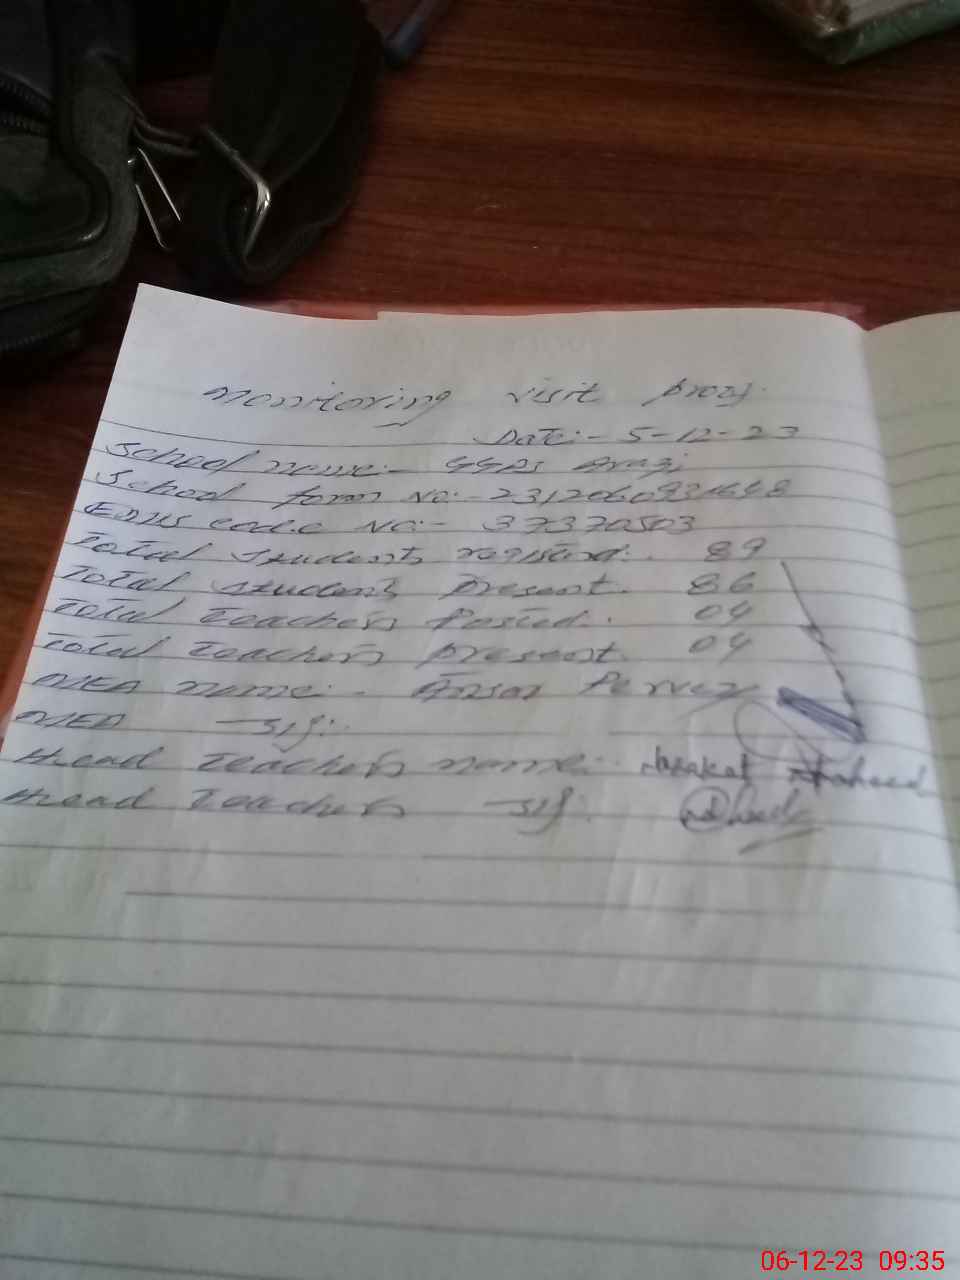 Monitoring visit proof
Date:- 5-12-23
School name:- GGPS Arazi
School form No:- 2312060931648
EMIS code No:- 37370503
Total Students registerd:. 89
Total students present. 86
Total teachers Posted:. 04
Total teachers present. 04
MEA name:. Ansar Pervez
MEA sig:.
Head teachers name:. Naheed
Head teachers sig:.
06-12-23 09:35